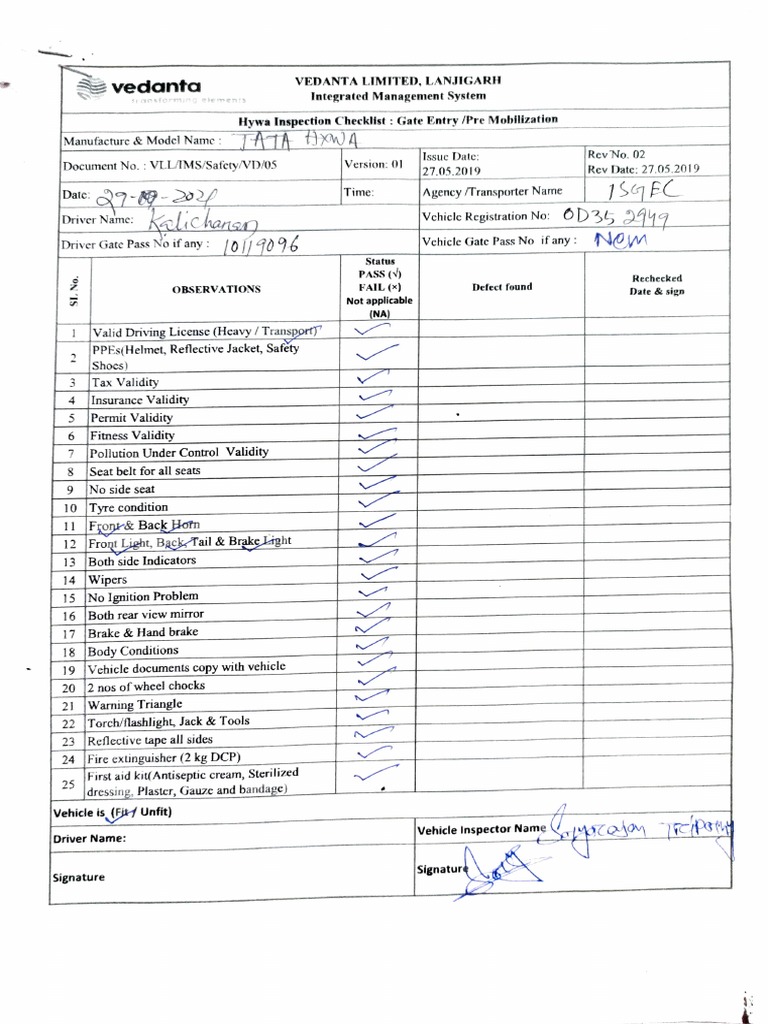 vedanta
transforming elements
VEDANTA LIMITED, LANJIGARH
Integrated Management System
Hywa Inspection Checklist : Gate Entry /Pre Mobilization
Manufacture & Model Name : TATA HXWA
Document No. : VLL/IMS/Safety/VD/05 Version: 01 Issue Date: 27.05.2019 Rev No. 02 Rev Date: 27.05.2019
Date: Time: Agency /Transporter Name ISGEC
Driver Name: Kalicharan Vehicle Registration No: OD35 2949
Driver Gate Pass No if any : 10119096 Vehicle Gate Pass No if any : New
SI. No. OBSERVATIONS Status PASS (√) FAIL (×) Not applicable (NA) Defect found Rechecked Date & sign
1 Valid Driving License (Heavy / Transport) ✓
2 PPEs(Helmet, Reflective Jacket, Safety Shoes) ✓
3 Tax Validity ✓
4 Insurance Validity ✓
5 Permit Validity ✓
6 Fitness Validity ✓
7 Pollution Under Control Validity ✓
8 Seat belt for all seats ✓
9 No side seat ✓
10 Tyre condition ✓
11 Front & Back Horn ✓
12 Front Light, Back, Tail & Brake Light ✓
13 Both side Indicators ✓
14 Wipers ✓
15 No Ignition Problem ✓
16 Both rear view mirror ✓
17 Brake & Hand brake ✓
18 Body Conditions ✓
19 Vehicle documents copy with vehicle ✓
20 2 nos of wheel chocks ✓
21 Warning Triangle ✓
22 Torch/flashlight, Jack & Tools ✓
23 Reflective tape all sides ✓
24 Fire extinguisher (2 kg DCP) ✓
25 First aid kit(Antiseptic cream, Sterilized dressing, Plaster, Gauze and bandage) ✓
Vehicle is (Fit / Unfit)
Driver Name: Vehicle Inspector Name
Signature Signature